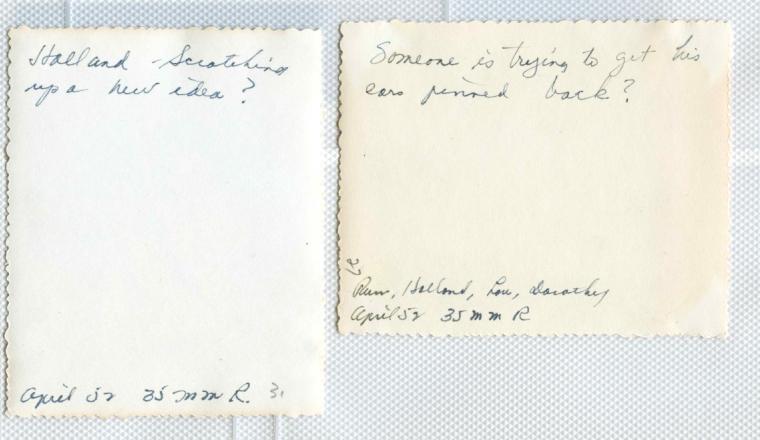 Holland - Scratching
up a new idea?
April 52 35 mm R. 31
Someone is trying to get his
ears pinned back?
27
Holland, Lou, Dorothy
April 52 35 mm R